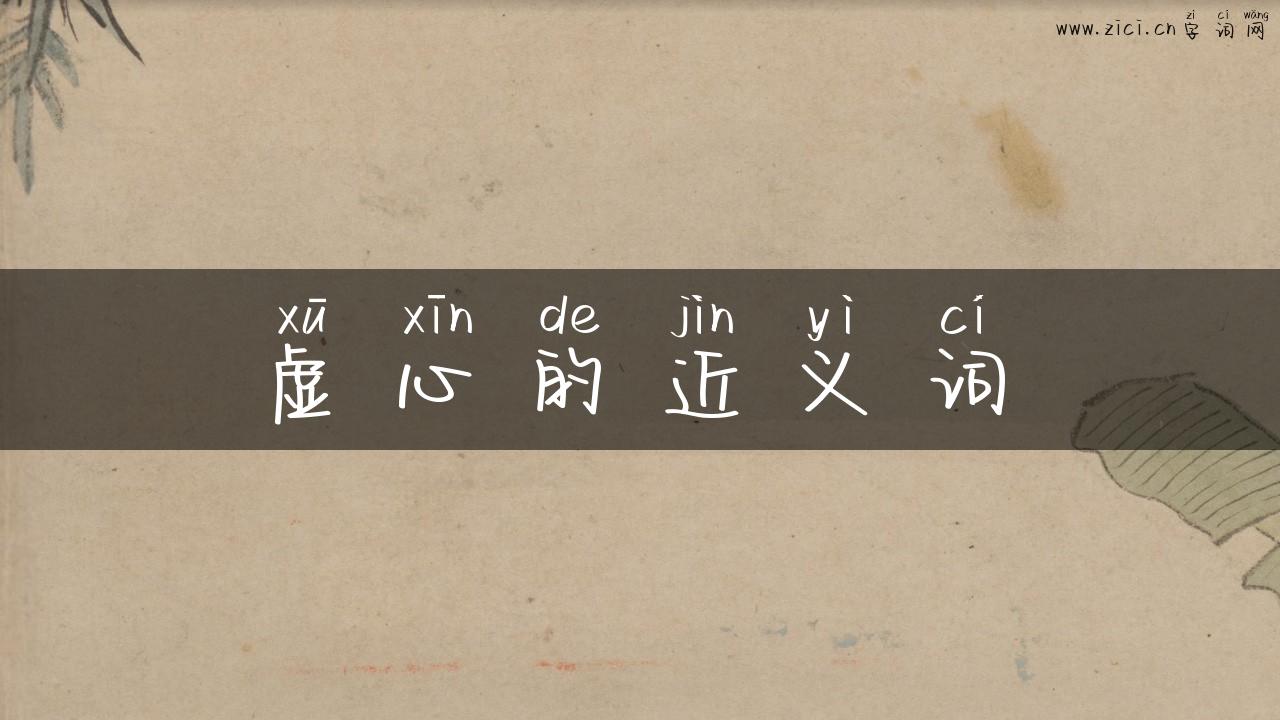 zì cí wǎng
www.zici.cn 字词网
xū xīn de jìn yì cí
虚心的近义词